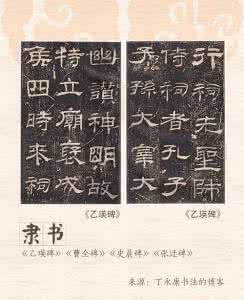 幽讚神明故
特立廟褒成
侯四時來祠
行祠先聖師
侍祠者孔子
子孫大宰大
《乙瑛碑》
《乙瑛碑》
隶书
《乙瑛碑》《曹全碑》《史晨碑》《张迁碑》
来源：丁永康书法的博客